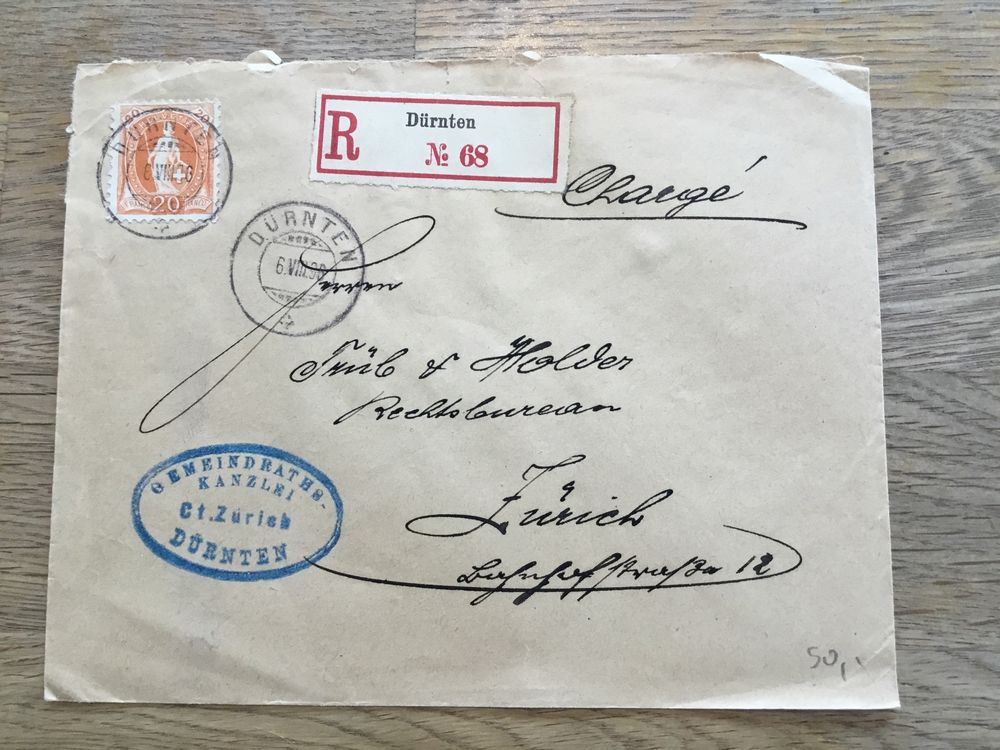 20 20
HELVETIA
FRANCO FRANCO
20
DÜRNTEN
6.VIII.
R
Dürnten
№ 68
Chargé
DÜRNTEN
6.VIII.
Herren
Trüb & Holder
Rechtsbureau
Zürich
Bahnhofstraße 12
GEMEINDRATHS-
KANZLEI
Ct. Zürich
DÜRNTEN
50,-